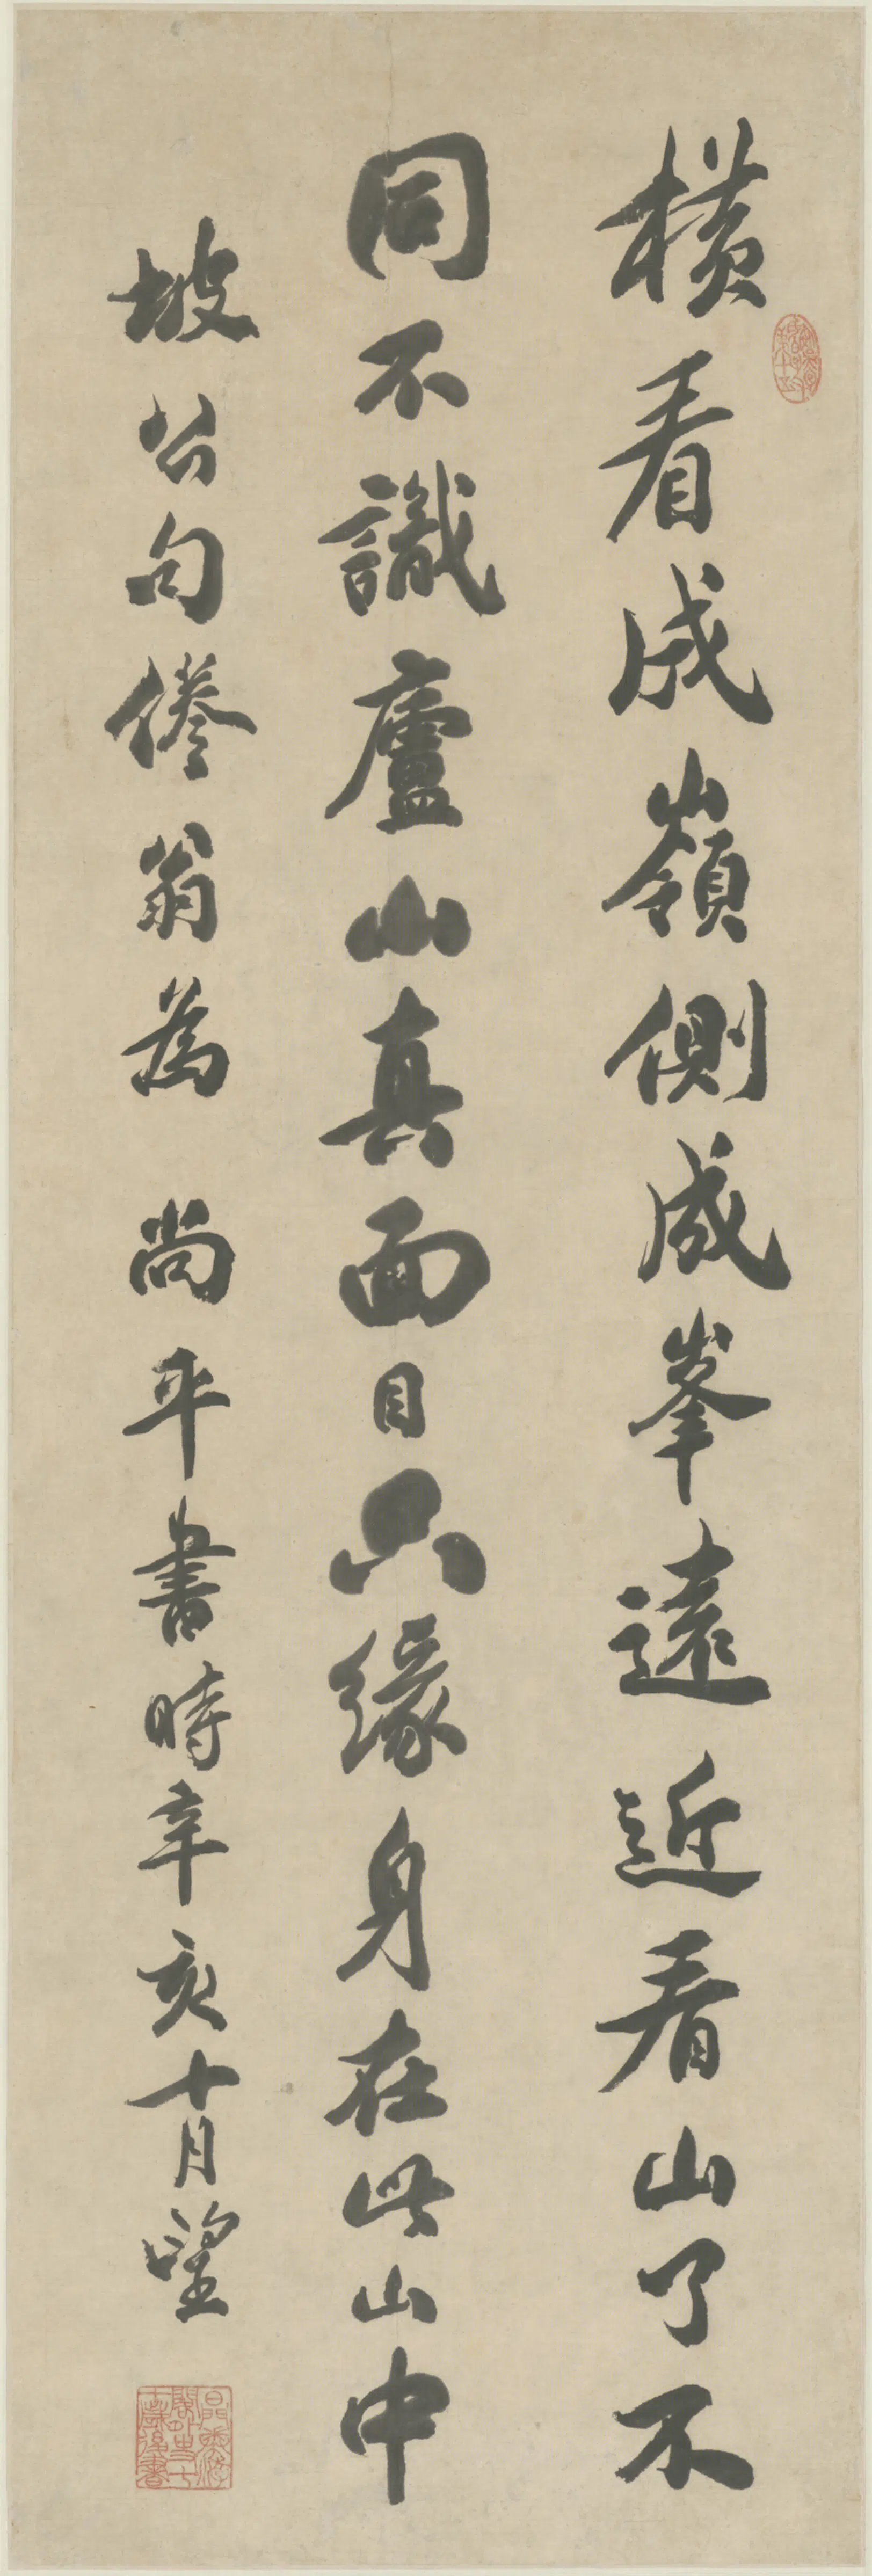 橫看成嶺側成峯遠近看山了不
同不識廬山真面目只緣身在此山中
坡公句倦翁為 尚平書時辛亥十月望